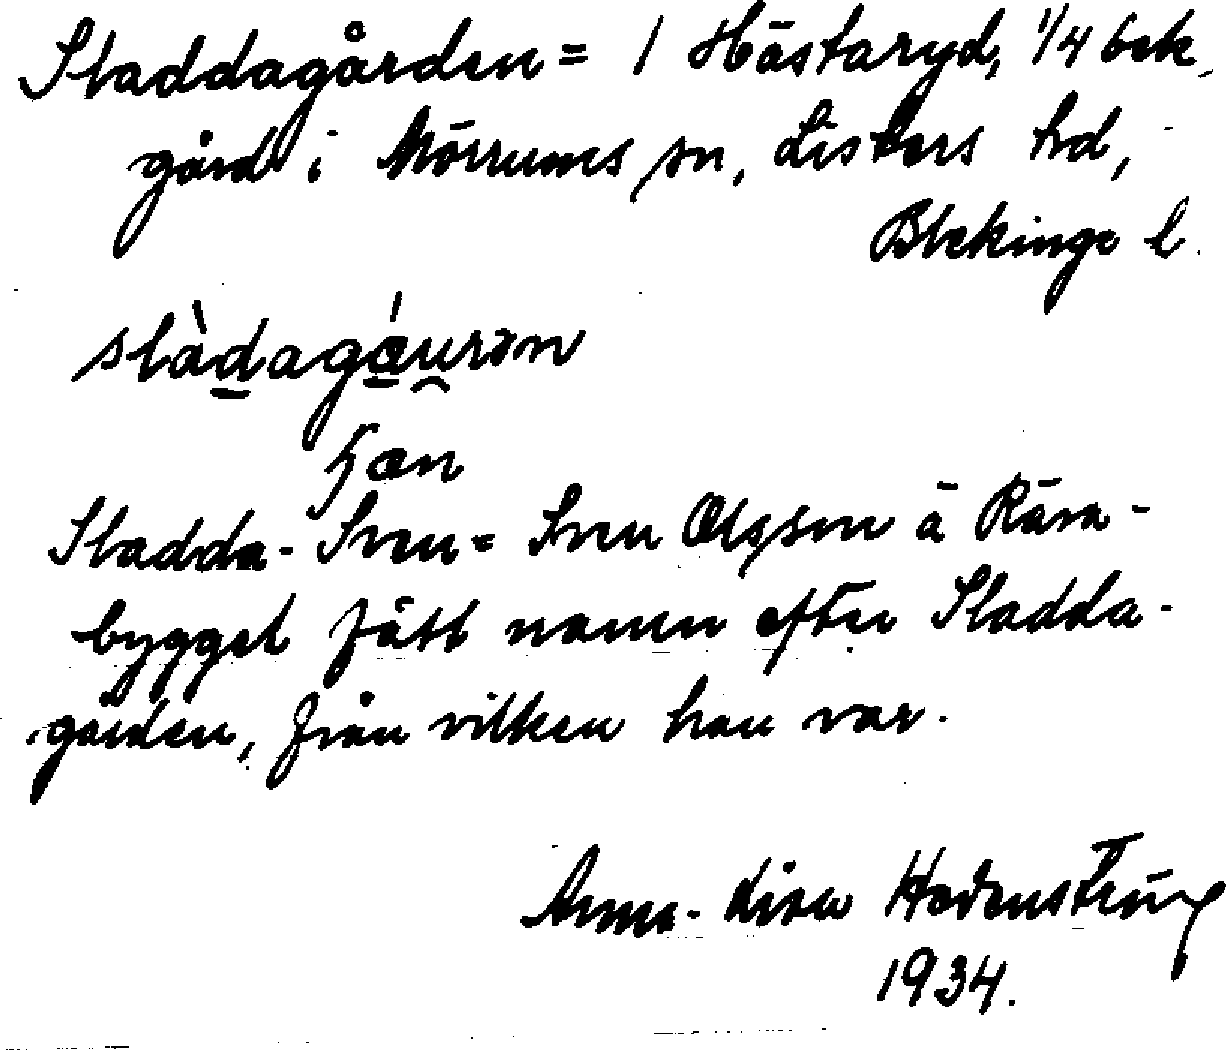 Sladdagården = 1 Hästaryd, 1/4 bek.
gård i Mörrums sn, Listers hd,
Blekinge l.
slàdagǽu̯rən
hæn
Sladda-Sven = Sven Olsson å Röra-
bygget fått namn efter Sladda-
gården, från vilken han var.
Anna-Lisa
1934.